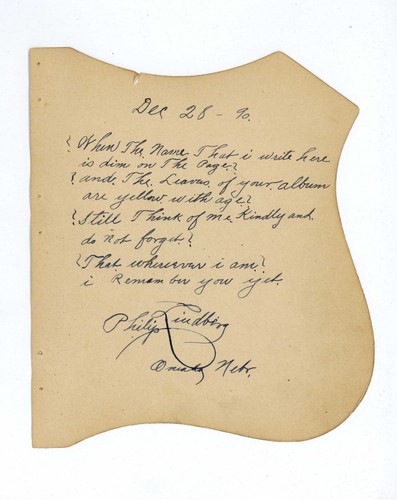 Dec 28 - 90.
{ When The Name That i write here
is dim on The Page }
{ and. The Leaves of your album
are yellow with age }
{ Still Think of me Kindly and
do not forget }
{ That wherever i am }
i Remamber you yet.
Philip Lindberg
Omaha Nebr.